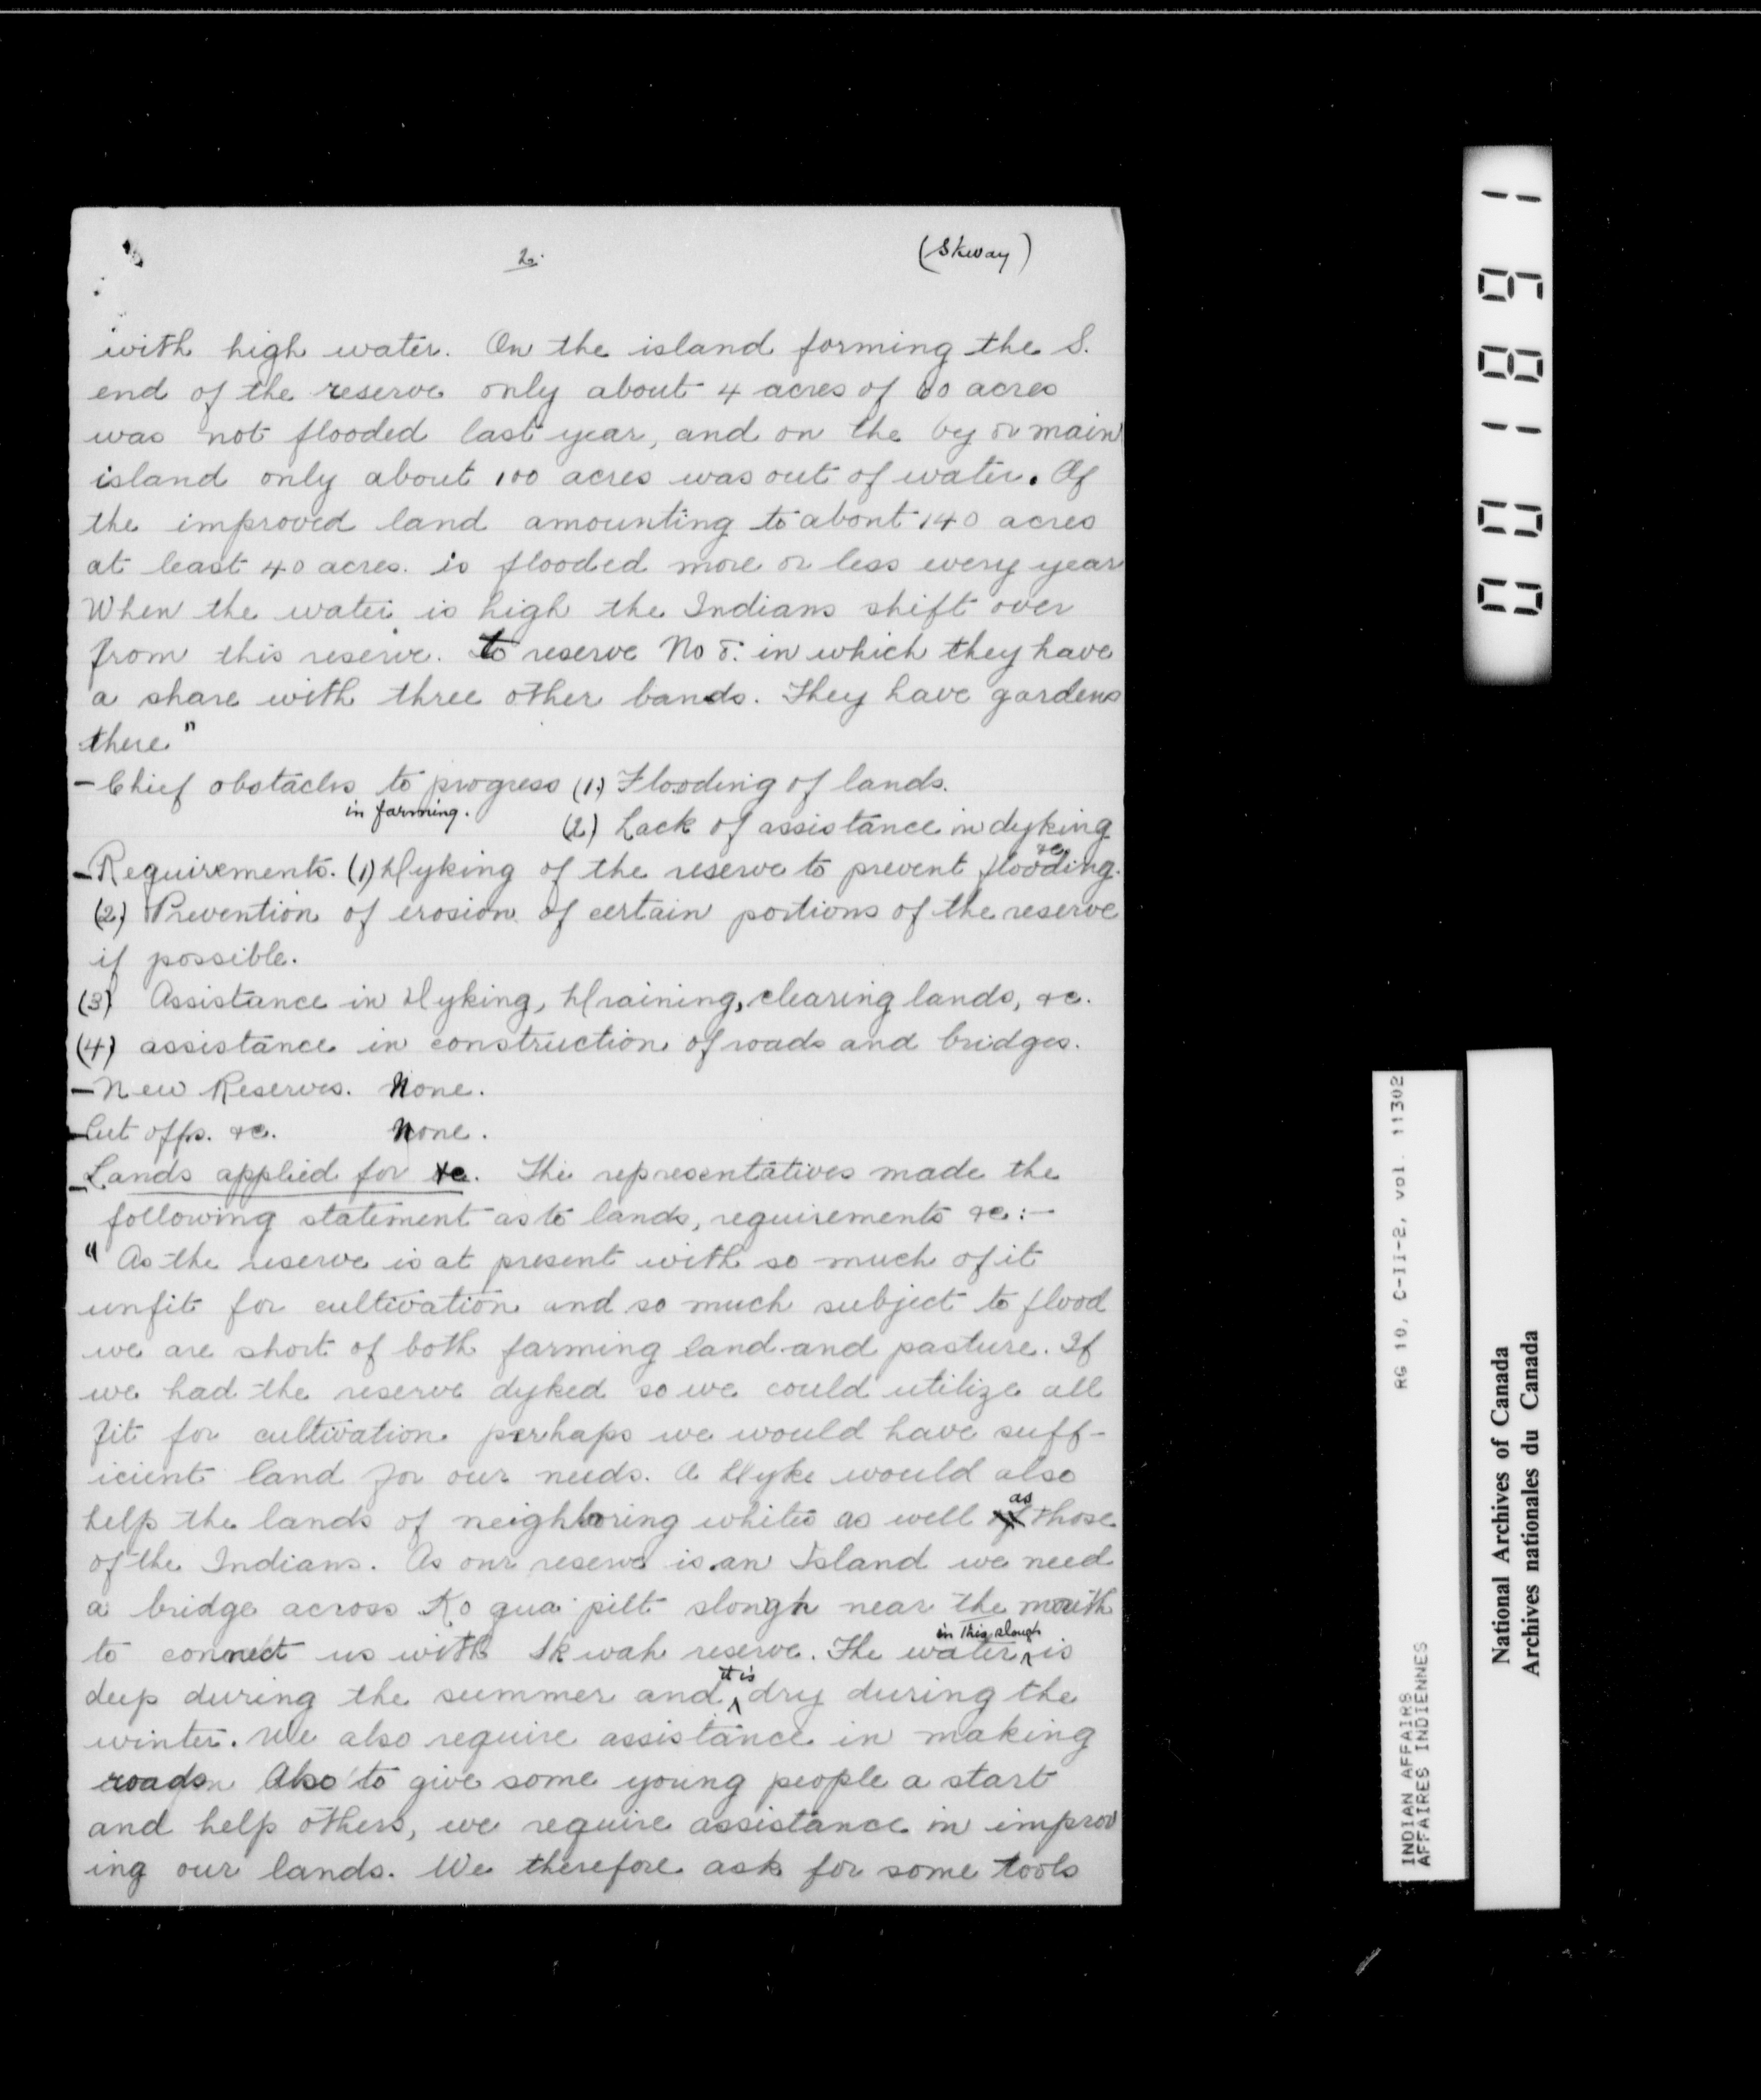 2. (Skway)
with high water. On the island forming the S.
end of the reserve only about 4 acres of 60 acres
was not flooded last year, and on the by or main
island only about 100 acres was out of water. Of
the improved land amounting to about 140 acres
at least 40 acres. is flooded more or less every year
When the water is high the Indians shift over
from this reserve. to reserve No in which they have
a share with three other bands. They have gardens
there"
- Chief obstacles to progress (1.) Flooding of lands.
in farming.
(2) Lack of assistance in dyking
&c.
- Requirements. (1) Dyking of the reserve to prevent flooding.
(2) Prevention of erosion of certain portions of the reserve
if possible.
(3) Assistance in Dyking, Draining, clearing lands, &c.
(4) assistance in construction of roads and bridges.
- New Reserves. None.
- Cut offs. &c. None.
- Lands applied for &c. The representatives made the
following statement as to lands, requirements &c:-
" As the reserve is at present with so much of it
unfit for cultivation and so much subject to flood
we are short of both farming land and pasture. If
we had the reserve dyked so we could utilize all
fit for cultivation perhaps we would have suff-
icient land for our needs. A Dyke would also
help the lands of neighboring whites as well as those
of the Indians. As our reserve is an Island we need
a bridge across Ko qua pilt slough near the mouth
to connect us with Skwah reserve. The water in this slough is
deep during the summer and it is dry during the
winter. We also require assistance in making
roads Also to give some young people a start
and help others, we require assistance in improv
ing our lands. We therefore ask for some tools
001891
RG 10, C-II-2, vol. 11302
INDIAN AFFAIRS
AFFAIRES INDIENNES
National Archives of Canada
Archives nationales du Canada